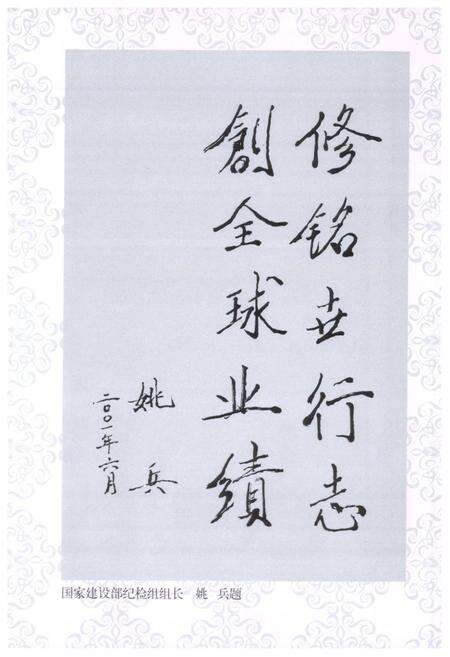 修铭世行志
創全球业績
姚兵
二〇〇一年六月
国家建设部纪检组组长 姚 兵题